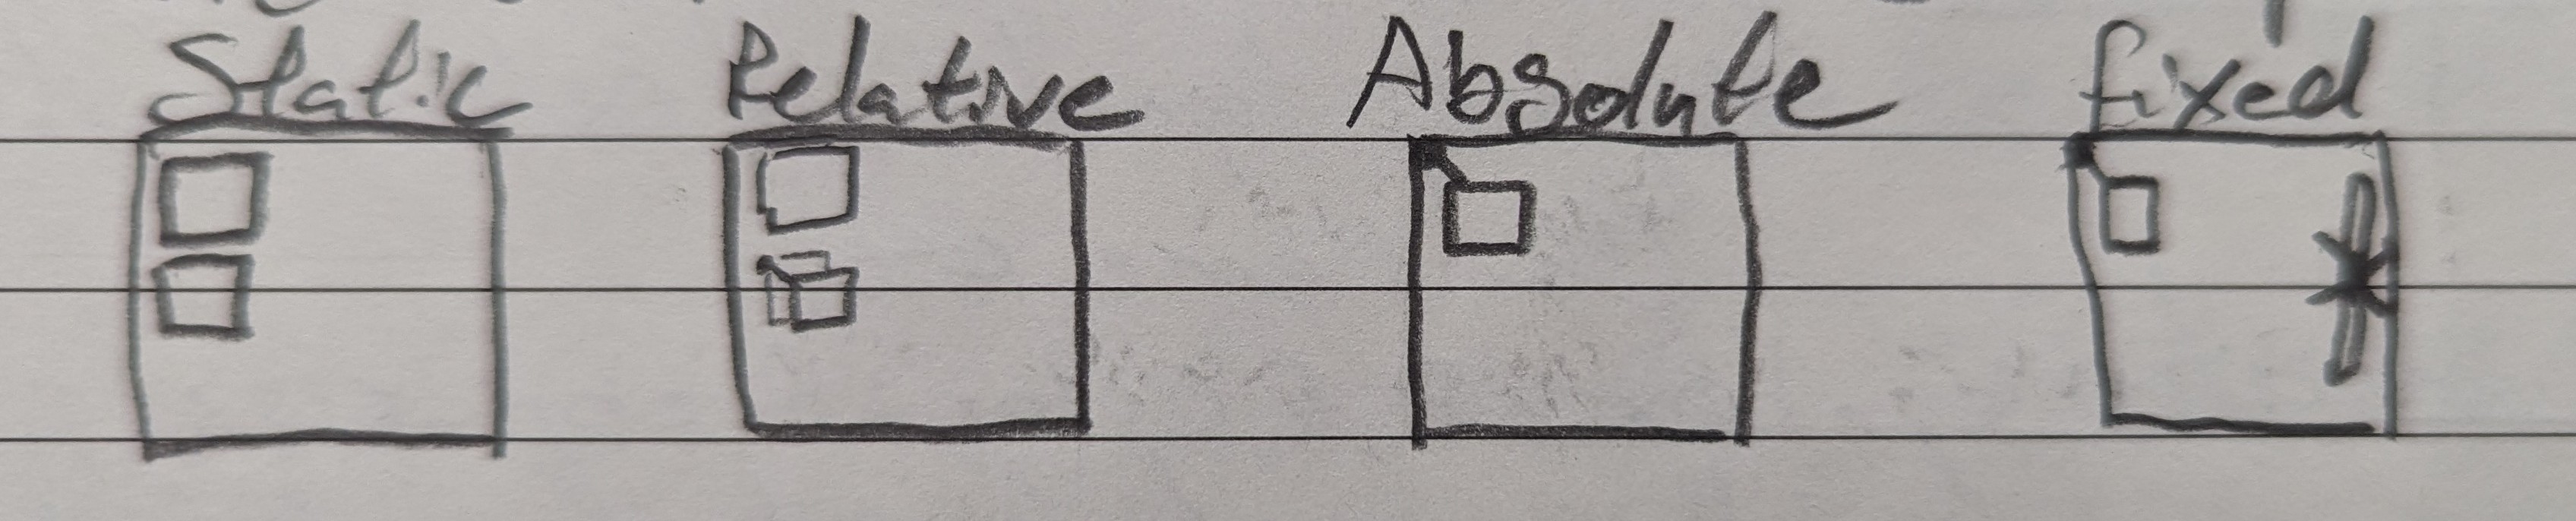 Static Relative Absolute fixed